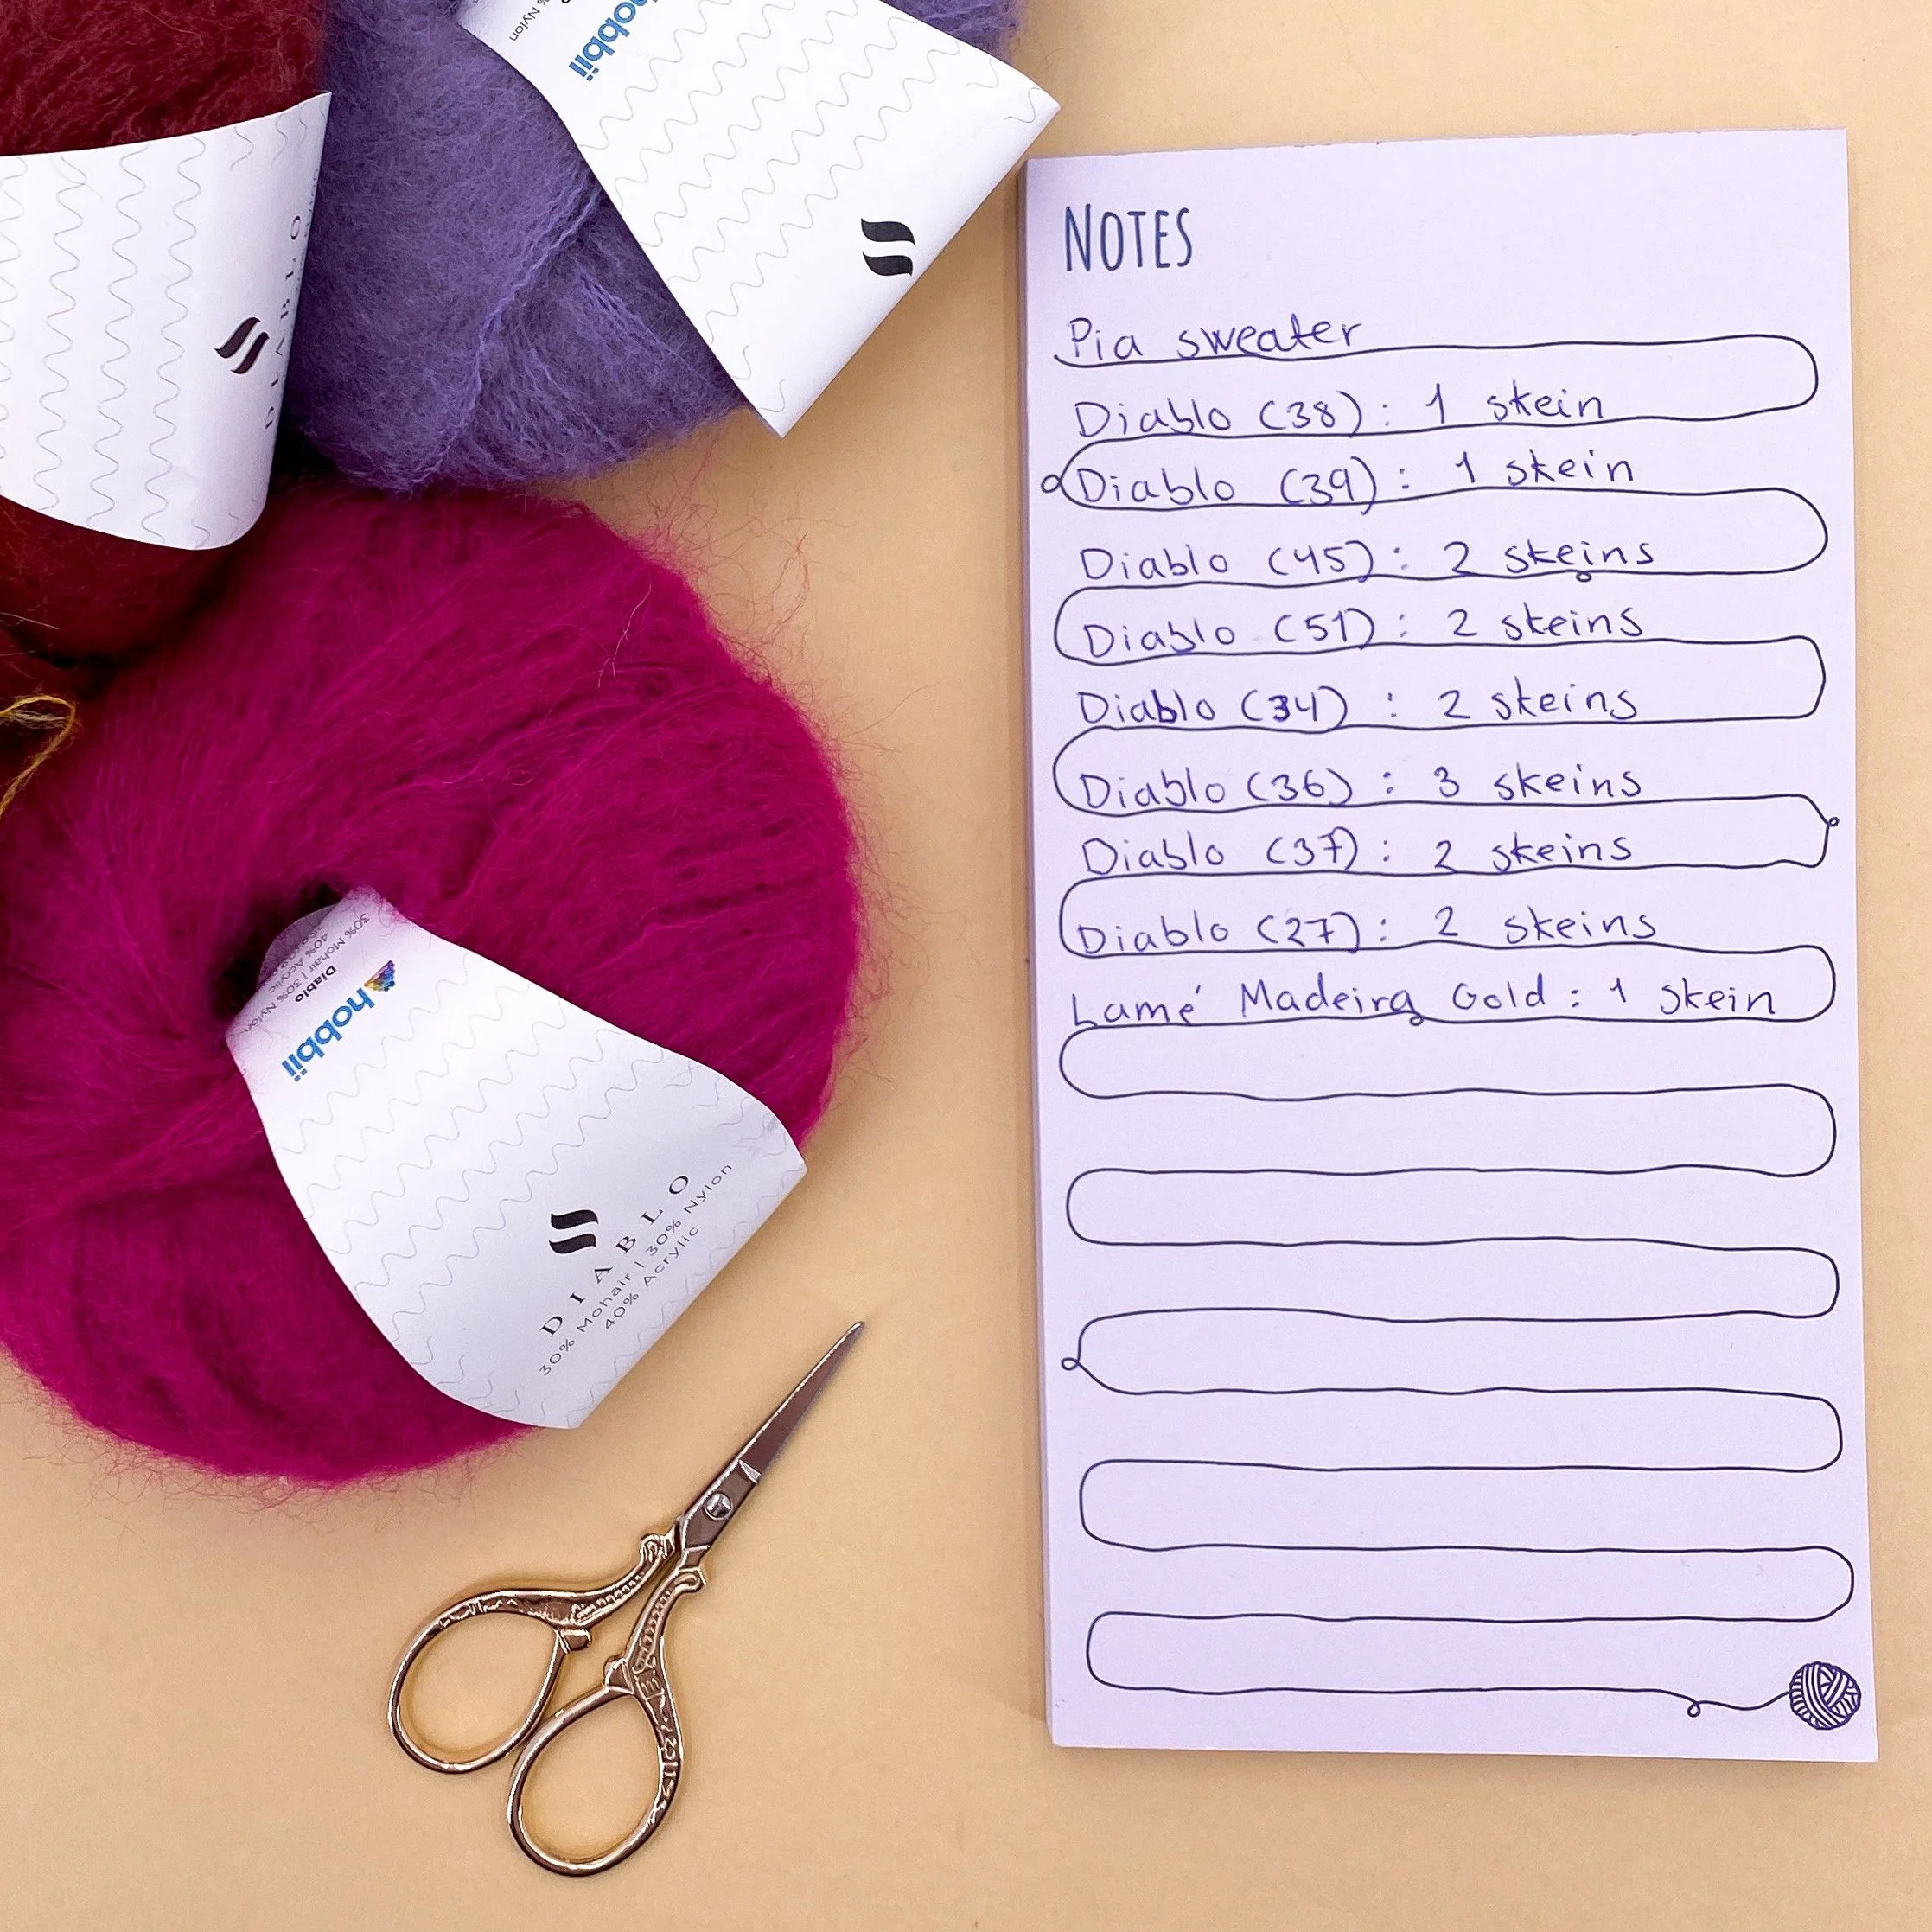 % Nylon
hobbii
DIABLO
NOTES
Pia sweater
Diablo (38): 1 skein
Diablo (39): 1 skein
Diablo (45): 2 skeins
Diablo (51): 2 skeins
Diablo (34) : 2 skeins
Diablo (36) : 3 skeins
Diablo (37): 2 skeins
Diablo (27): 2 skeins
Lamé Madeira Gold: 1 skein
30% Mohair | 30% Nylon
40% Acrylic
Diablo
hobbii
DIABLO
30% Mohair | 30% Nylon
40% Acrylic